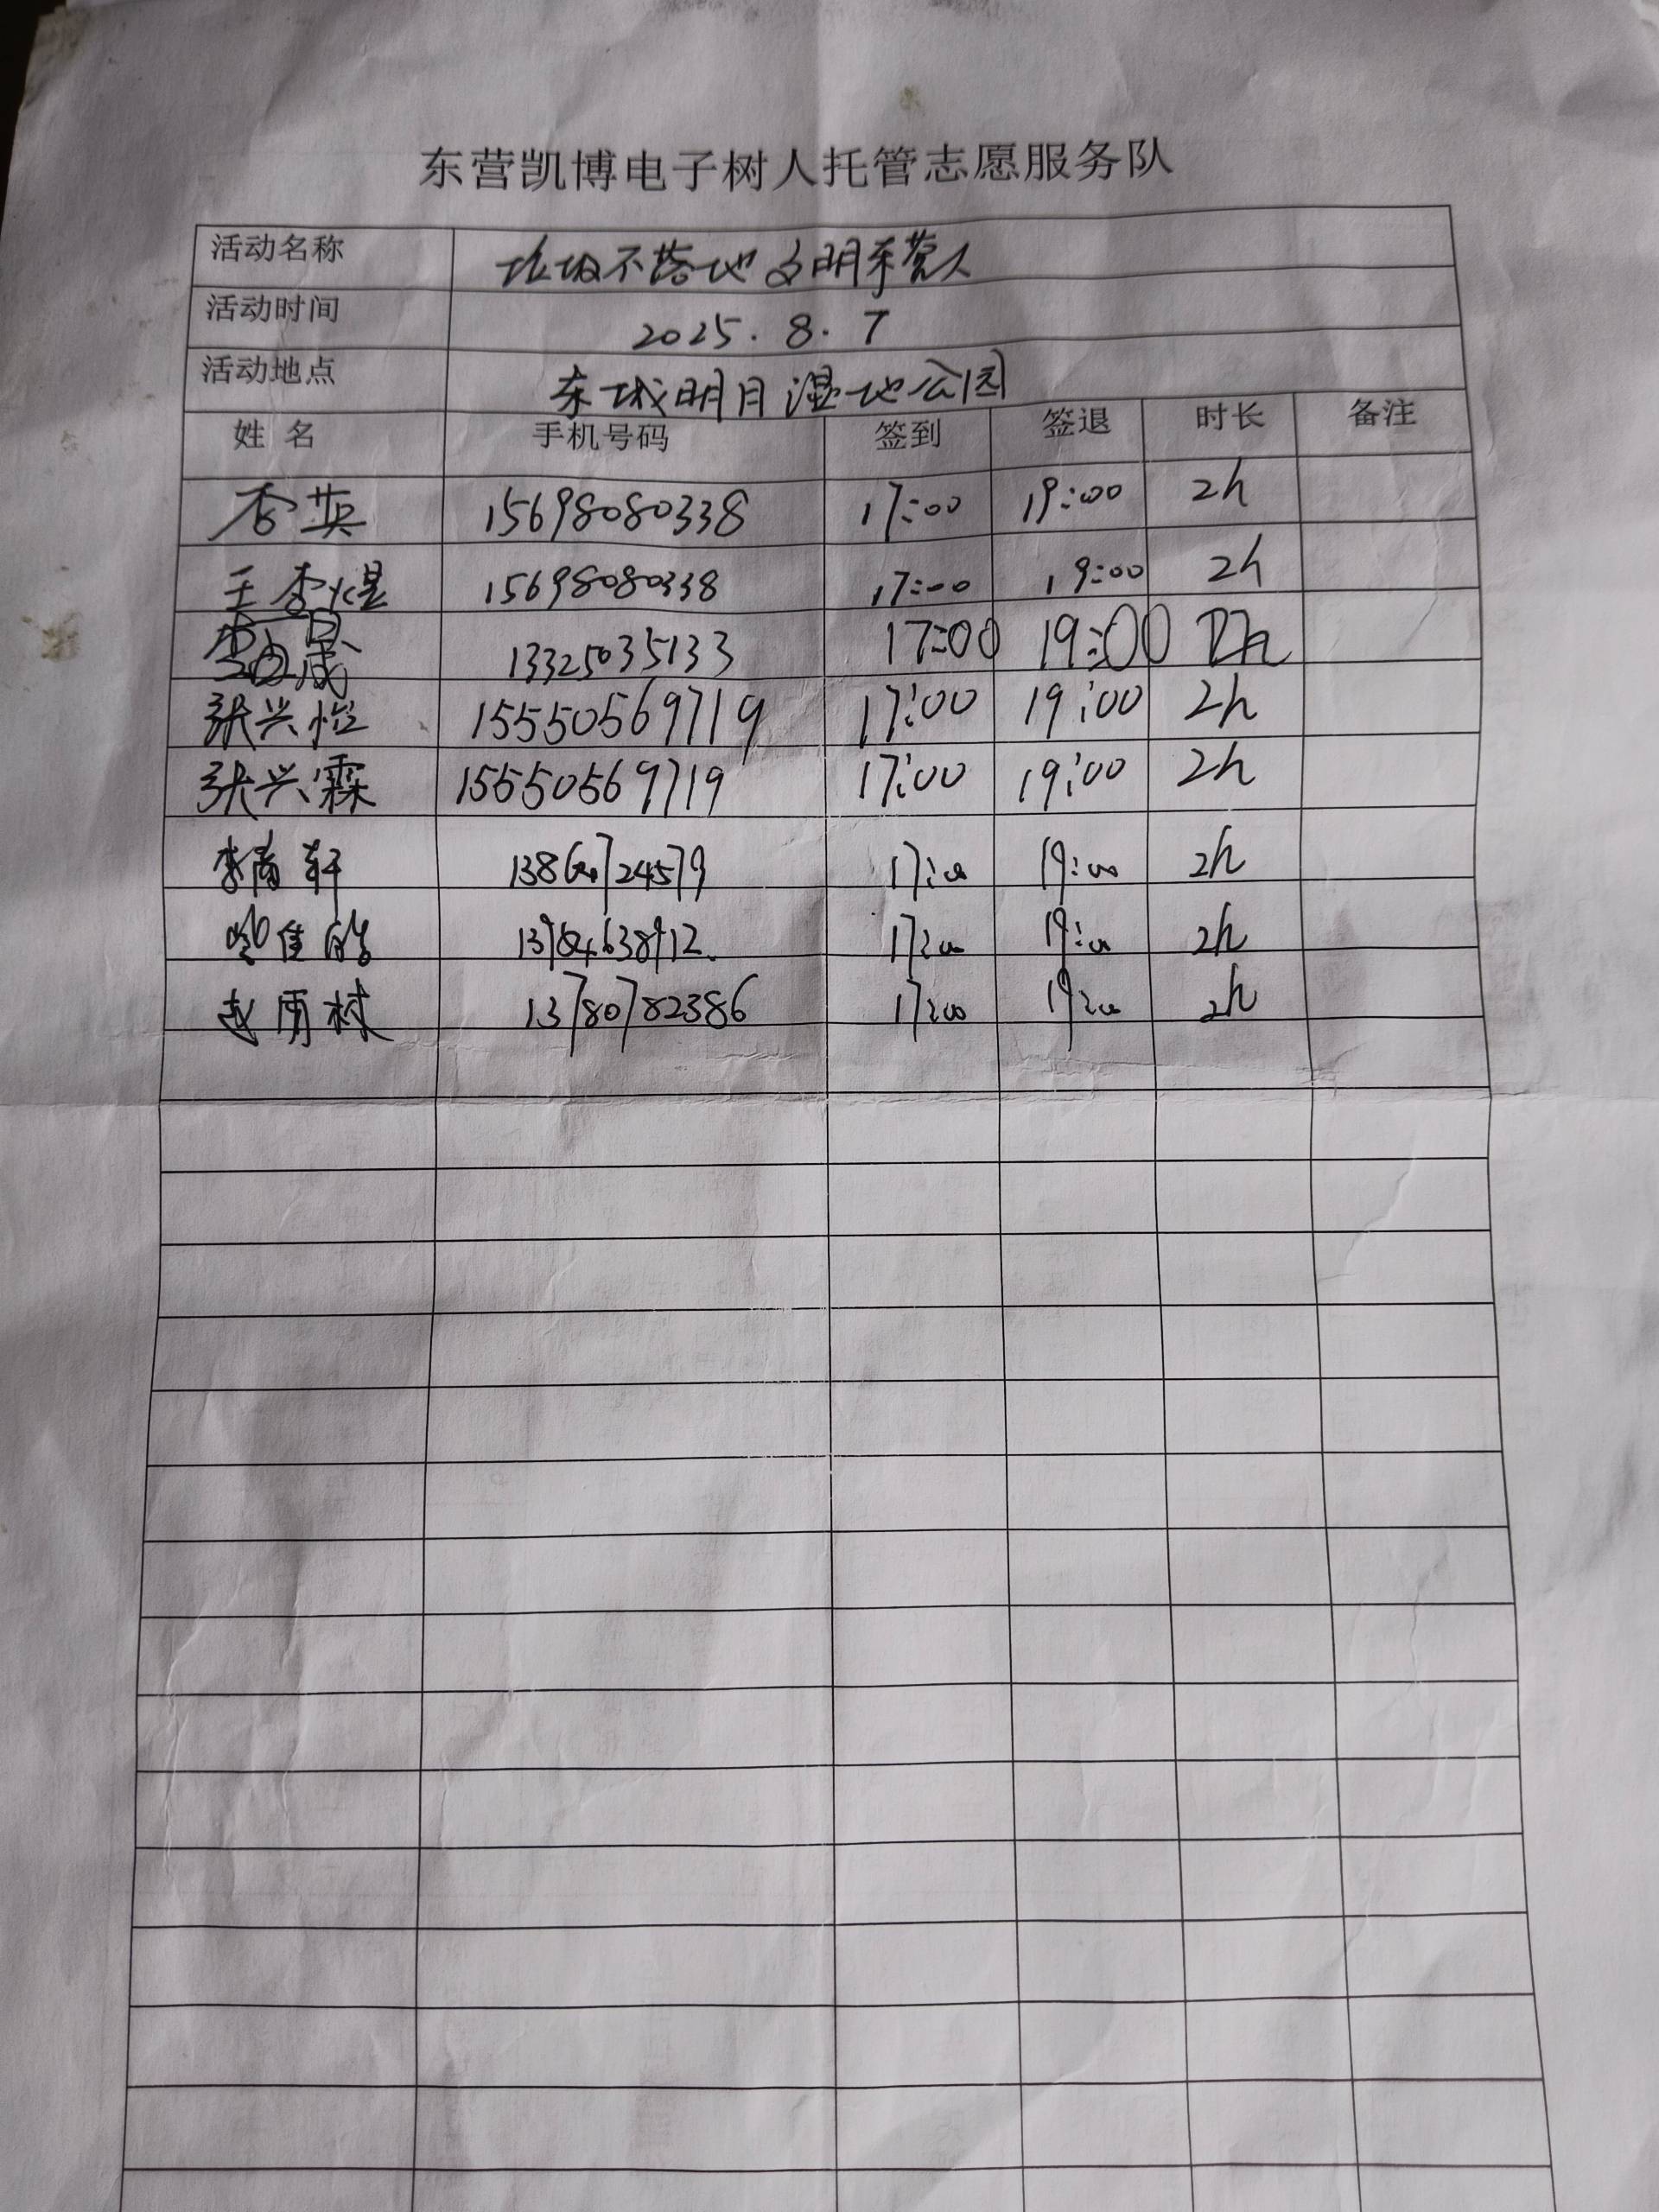 东营凯博电子树人托管志愿服务队
活动名称 垃圾不落地 文明东营人
活动时间 2025.8.7
活动地点 东城明月湿地公园
姓名 手机号码 签到 签退 时长 备注
李英 15698080338 17:00 19:00 2h
王李煜 15698080338 17:00 19:00 2h
13325035133 17:00 19:00
张兴怡 15550569719 17:00 19:00 2h
张兴霖 15550569719 17:00 19:00 2h
李甯轩 17:00 19:00 2h
17:00 19:00 2h
赵雨林 13780782386 17:00 19:00 2h